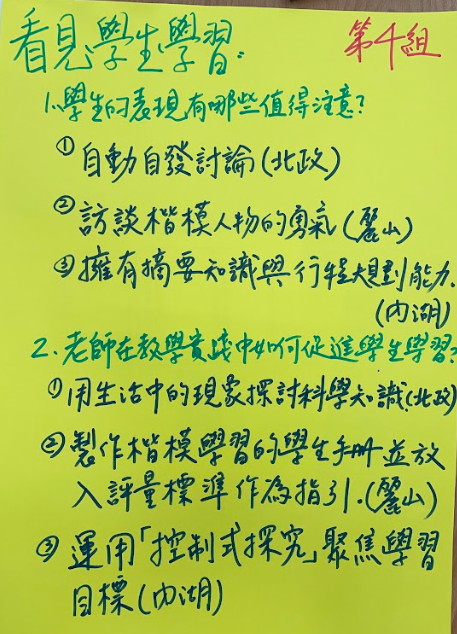 看見學生學習： 第4組
1.學生的表現有哪些值得注意？
①自動自發討論(北政)
②訪談楷模人物的勇氣(麗山)
③擁有摘要知識與行程規劃能力.
(內湖)
2.老師在教學實踐中如何促進學生學習？
①用生活中的現象探討科學知識(北政)
②製作楷模學習的學生手册並放
入評量標準作為指引.(麗山)
③運用「控制式探究」聚焦學習
目標(內湖)